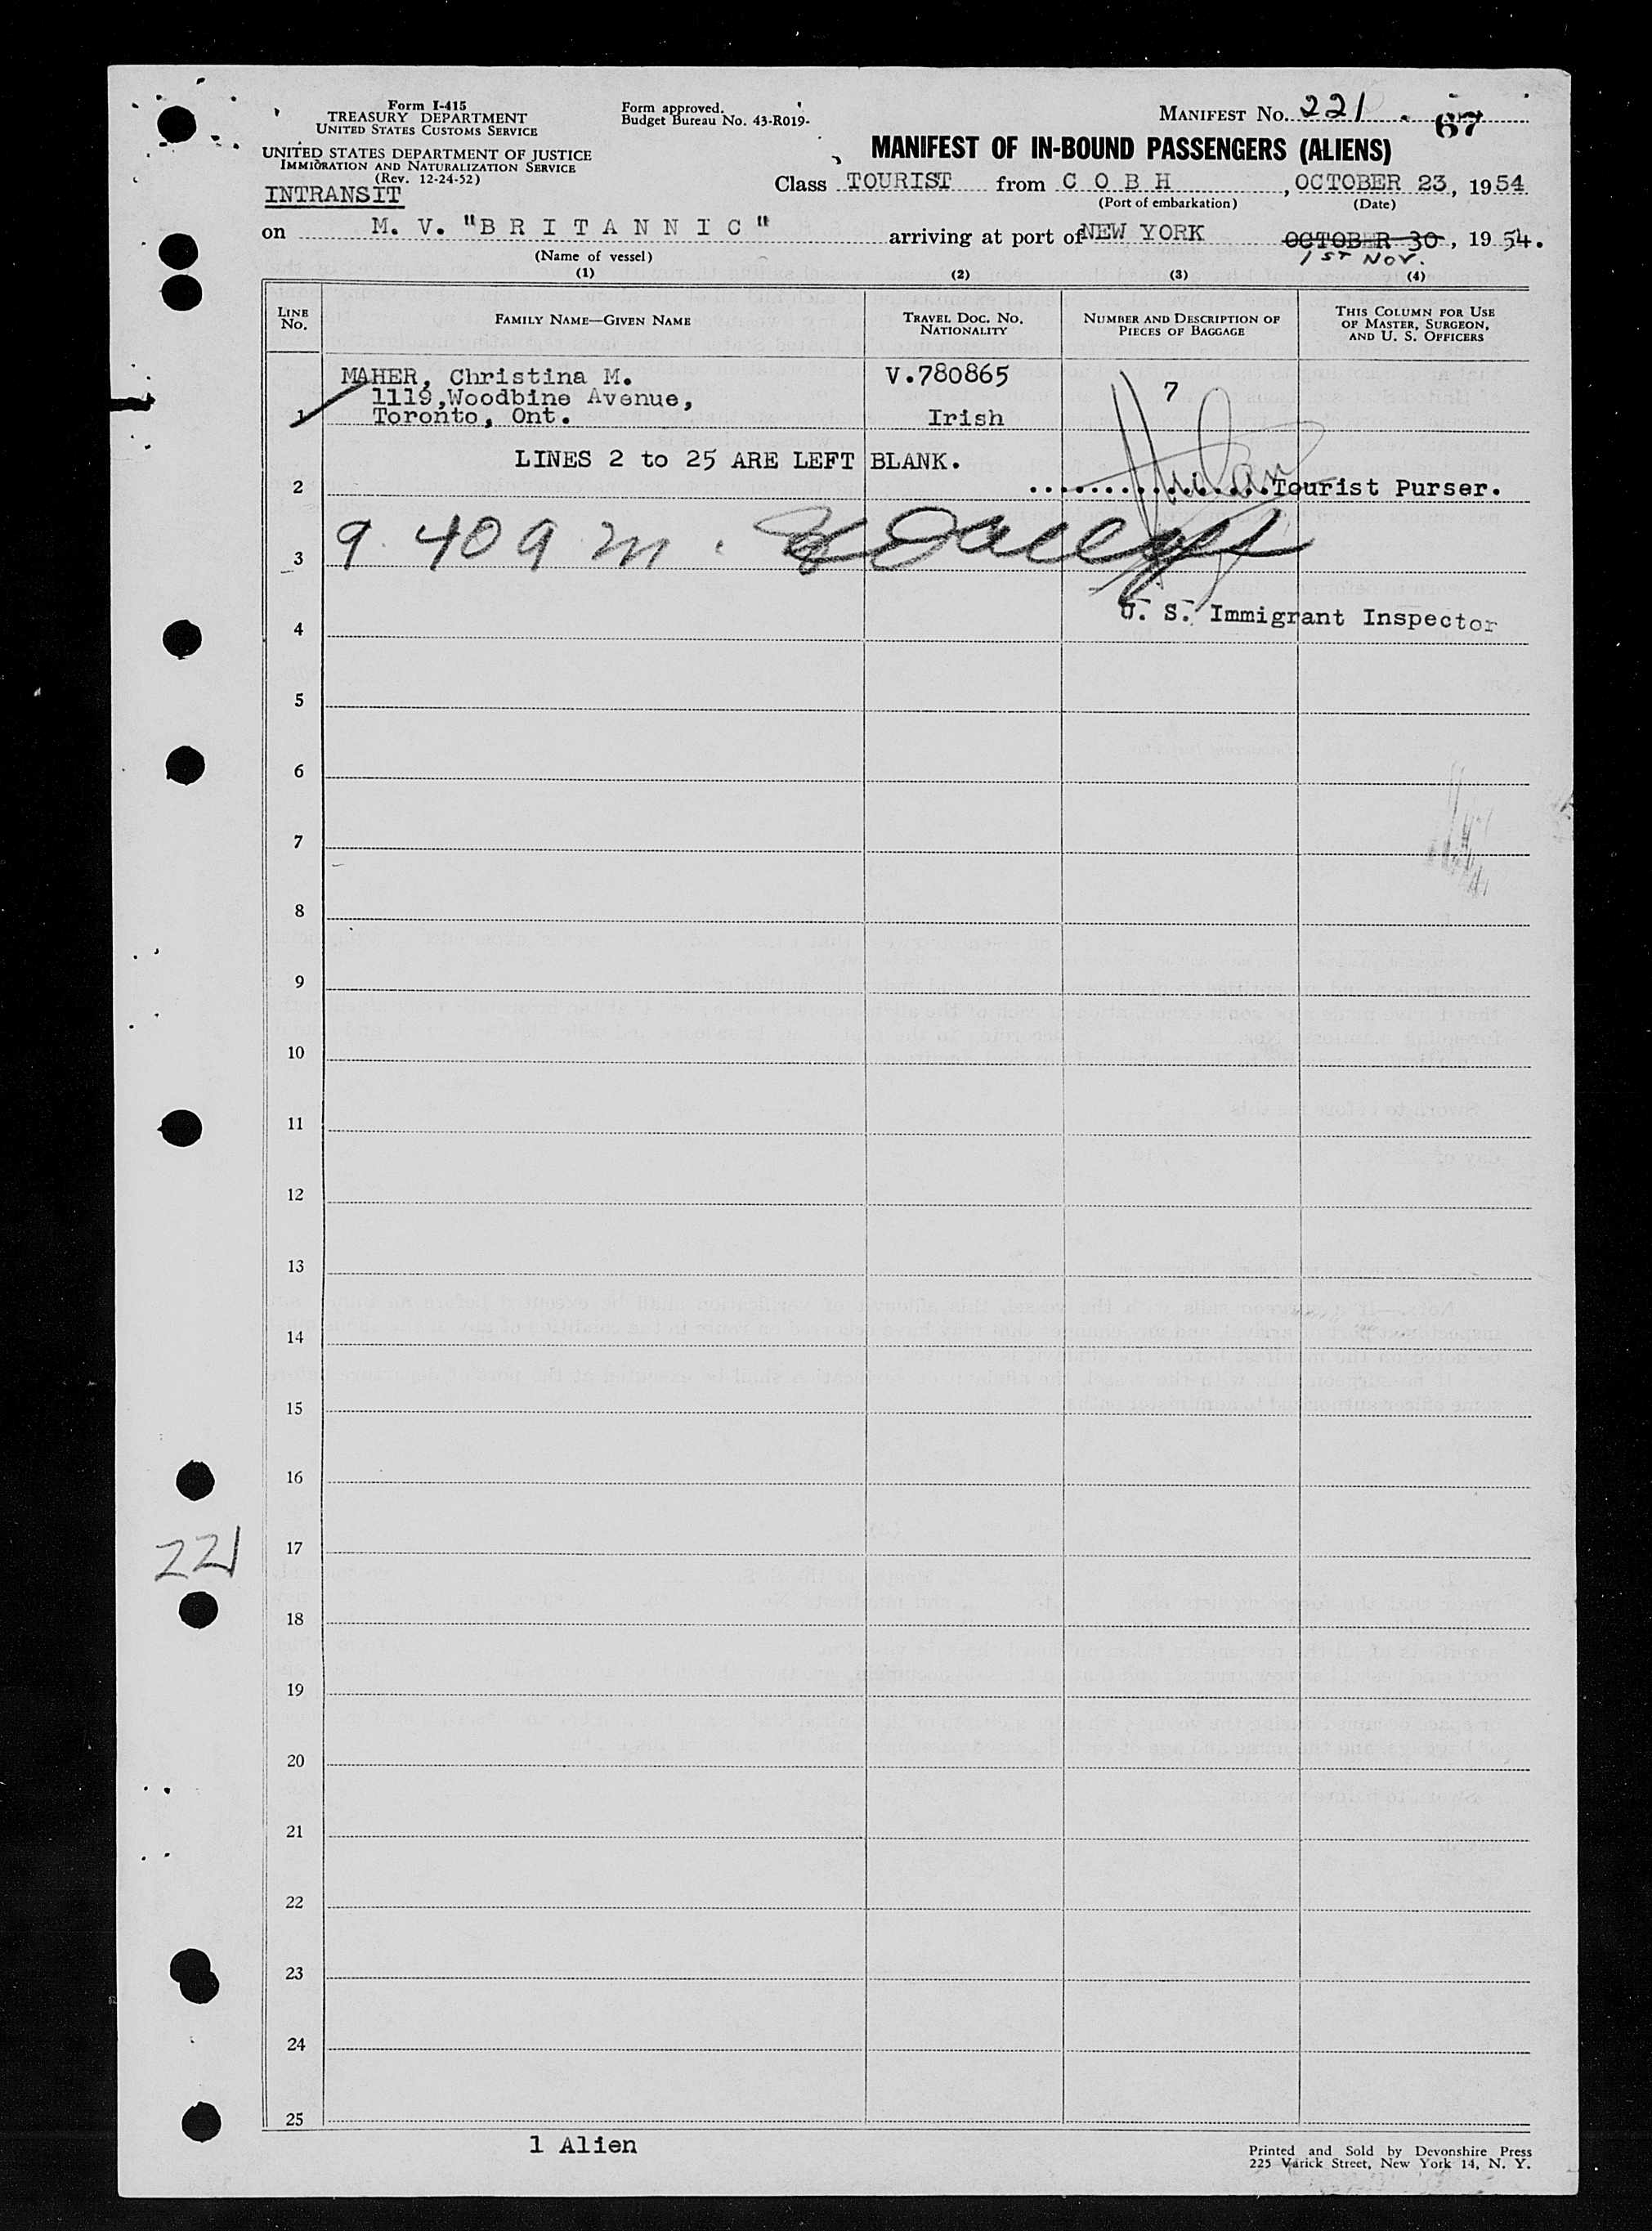 Form I-415
TREASURY DEPARTMENT
UNITED STATES CUSTOMS SERVICE
UNITED STATES DEPARTMENT OF JUSTICE
IMMIGRATION AND NATURALIZATION SERVICE
(Rev. 12-24-52)
INTRANSIT
Form approved.
Budget Bureau No. 43-R019-
MANIFEST No. 221 67
MANIFEST OF IN-BOUND PASSENGERS (ALIENS)
Class TOURIST from C O B H, OCTOBER 23, 1954
(Port of embarkation) (Date)
on M. V. "B R I T A N N I C" arriving at port of NEW YORK OCTOBER 30, 1954.
1ST NOV.
(Name of vessel)
(1) (2) (3) (4)
LINE No. FAMILY NAME—GIVEN NAME TRAVEL DOC. No. NATIONALITY NUMBER AND DESCRIPTION OF PIECES OF BAGGAGE THIS COLUMN FOR USE OF MASTER, SURGEON, AND U. S. OFFICERS
MAHER, Christina M. V.780865 7
1119,Woodbine Avenue,
1 Toronto, Ont. Irish
LINES 2 to 25 ARE LEFT BLANK.
2 ................Tourist Purser.
3 9.40 a m.
U. S. Immigrant Inspector
4
5
6
7
8
9
10
11
12
13
14
15
16
221
17
18
19
20
21
22
23
24
25
1 Alien
Printed and Sold by Devonshire Press
225 Varick Street, New York 14, N. Y.